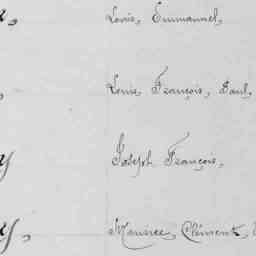 Louis, Emmanuel,
Louis, François, Paul,
Joseph François,
Maurice, Clément,